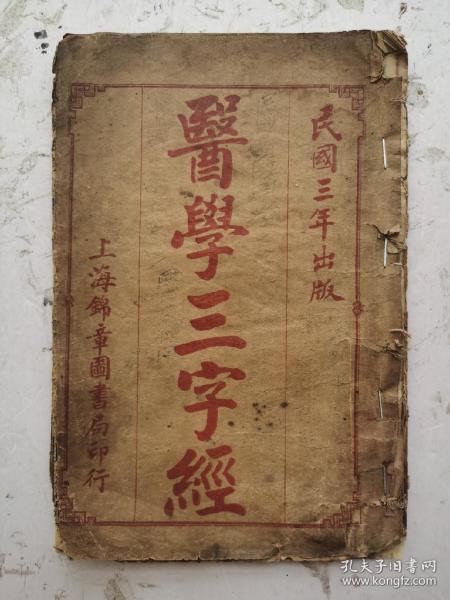 民國三年出版
醫學三字經
上海錦章圖書局印行
孔夫子旧书网
www.kongfz.com